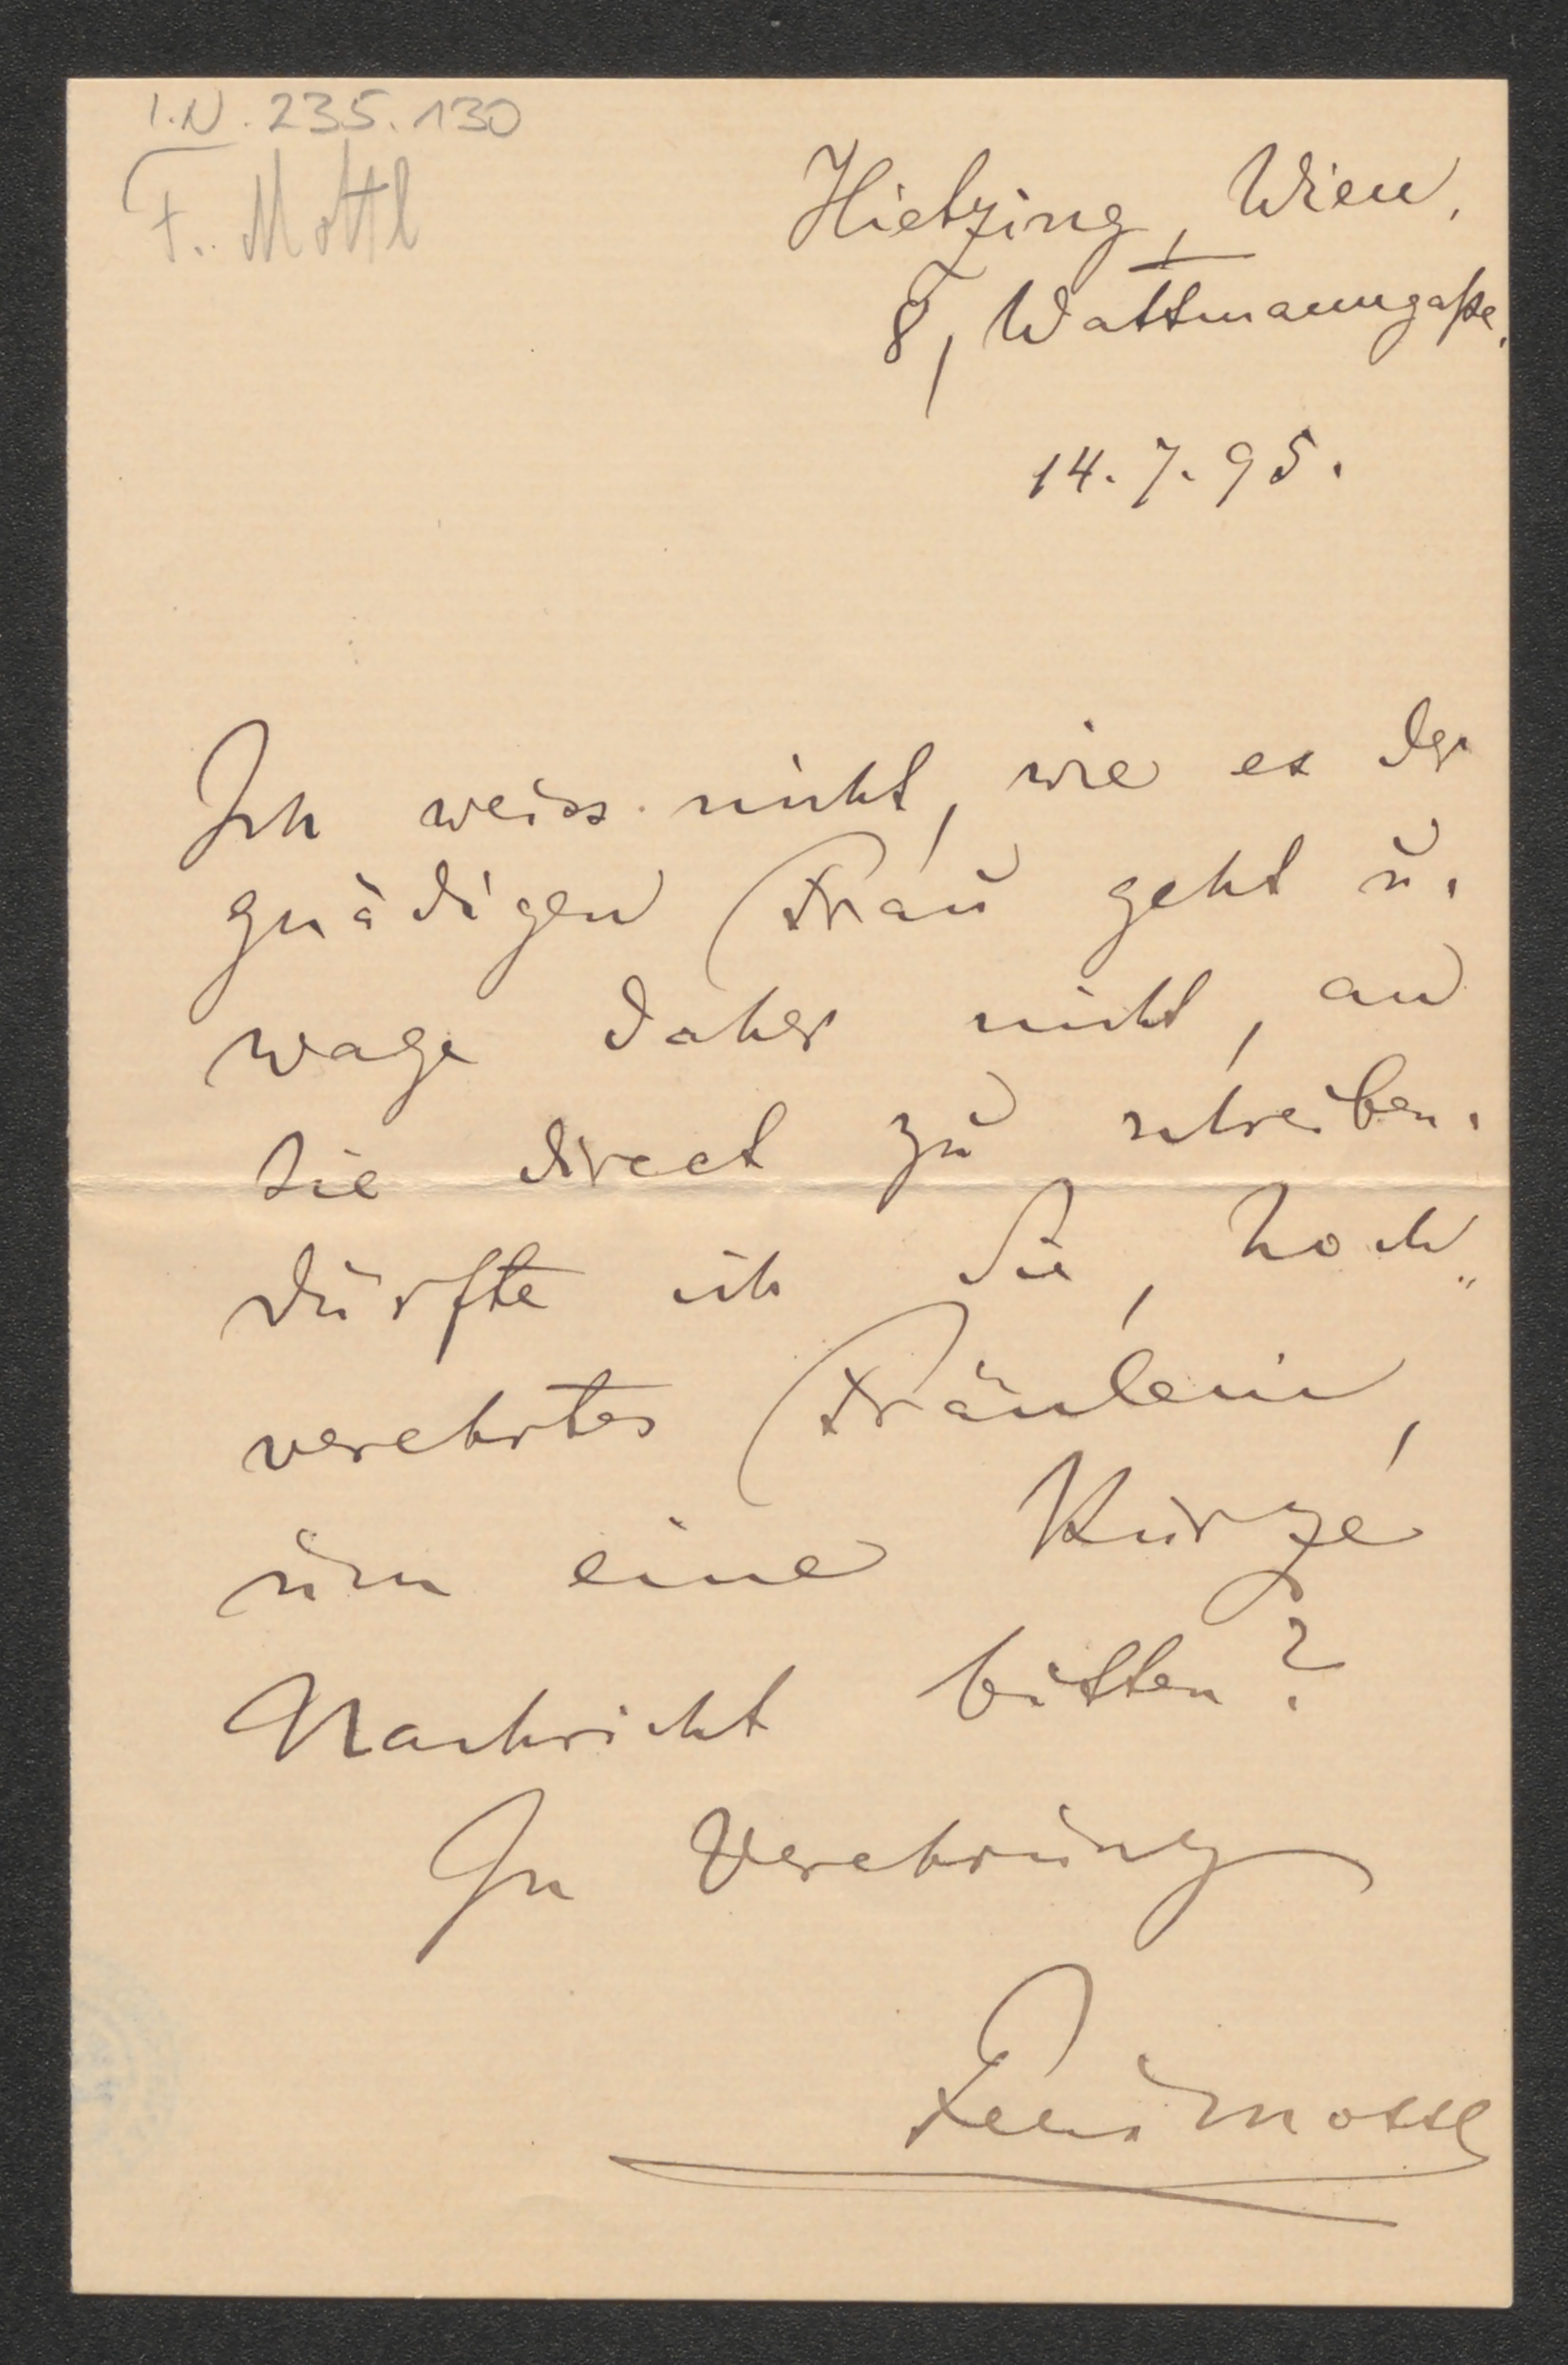 I.N. 235.130
F. Mottl
Hietzing, Wien.
8, Wattmanngaße.
14.7.95.
Ich weiss nicht, wie es der
gnädigen Frau geht u.
wage daher nicht, an
Sie direct zu schreiben.
Dürfte ich Sie, hoch„
verehrtes Fräulein,
um eine Kurze
Nachricht bitten?
In Verehrung
Felix Mottl